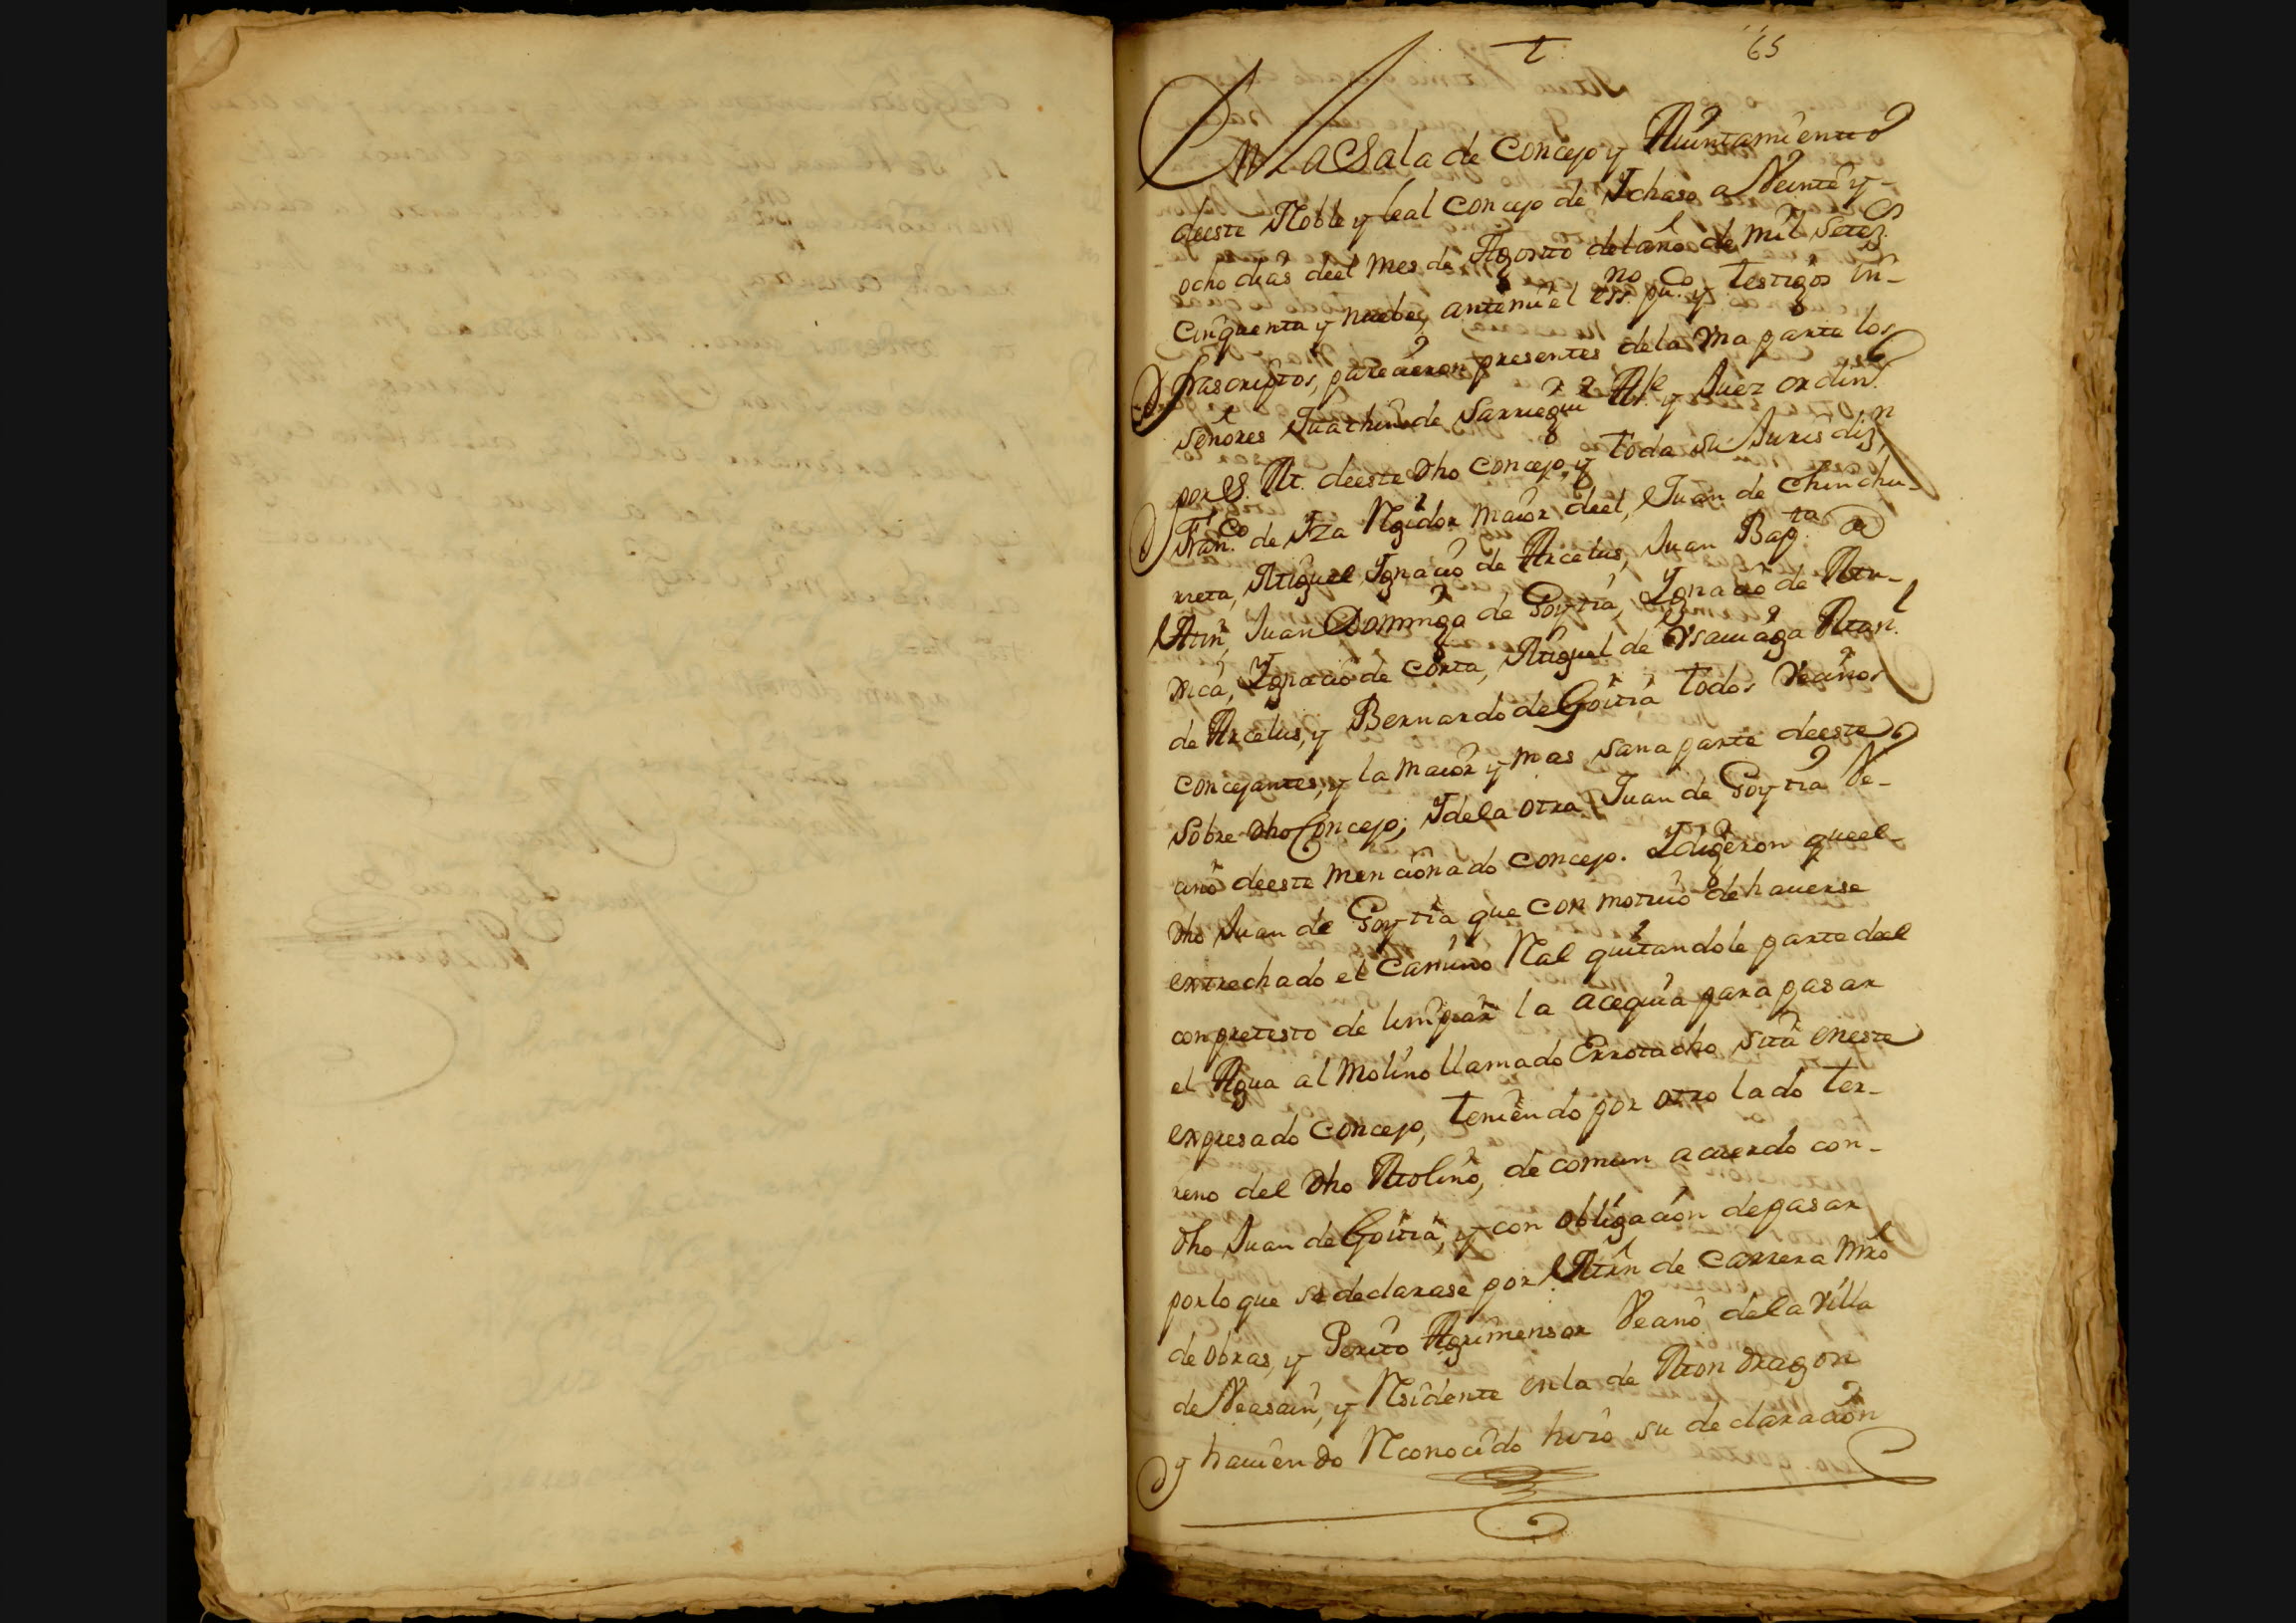 t
65
En la Sala de Concejo y Aiuntamiento
deeste Noble y leal Concejo de Ichaso a Veinte y-
ocho dias deel mes de Agosto del año de mil setez.s
cinquenta y nuebe, antemi el ess.no pu.co y testigos in-
frascriptos, parecieron presentes dela vna parte los
señores Juachin de Sarriegui Al.e y Juez ordin.o
por S. M. deeste dho concejo, y toda su Jurisdiz.n
Fran.co de Iza Rexidor maior deel, Juan de Chinchu-
rreta, Miguel Ignacio de Arcelus, Juan Bap.ta de
Mrn, Juan Domingo de Goytia, Ygnacio de
rica, Ygnacio de Corta, Miguel de Vsauiaga Man.l
de Arcelus, y Bernardo de Goitia todos vecinos
concejantes, y la maior y mas sana parte deeste
sobre dho Concejo; Y dela otra Juan de Goytia Ve-
cino deeste mencionado concejo. Y digeron que el-
dho Juan de Goytia que con motiuo de hauerse
extrechado el camino Rl quitandole parte deel
con pretesto de limpiar la acequia para pasar
el Agua al molino llamado Errotacho sita en este
expresado concejo, teniendo por otro lado ter-
reno del dho Molino, de comun acuerdo con-
dho Juan de Goitia, y con obligacion de pasar
por lo que se declarase por Mrn de Carrera Mro
de obras, y Perito Agrimensor Vecino dela Villa
de Veasain, y Residente en la de Mondragon
y hauiendo Reconocido hizo su declaracion